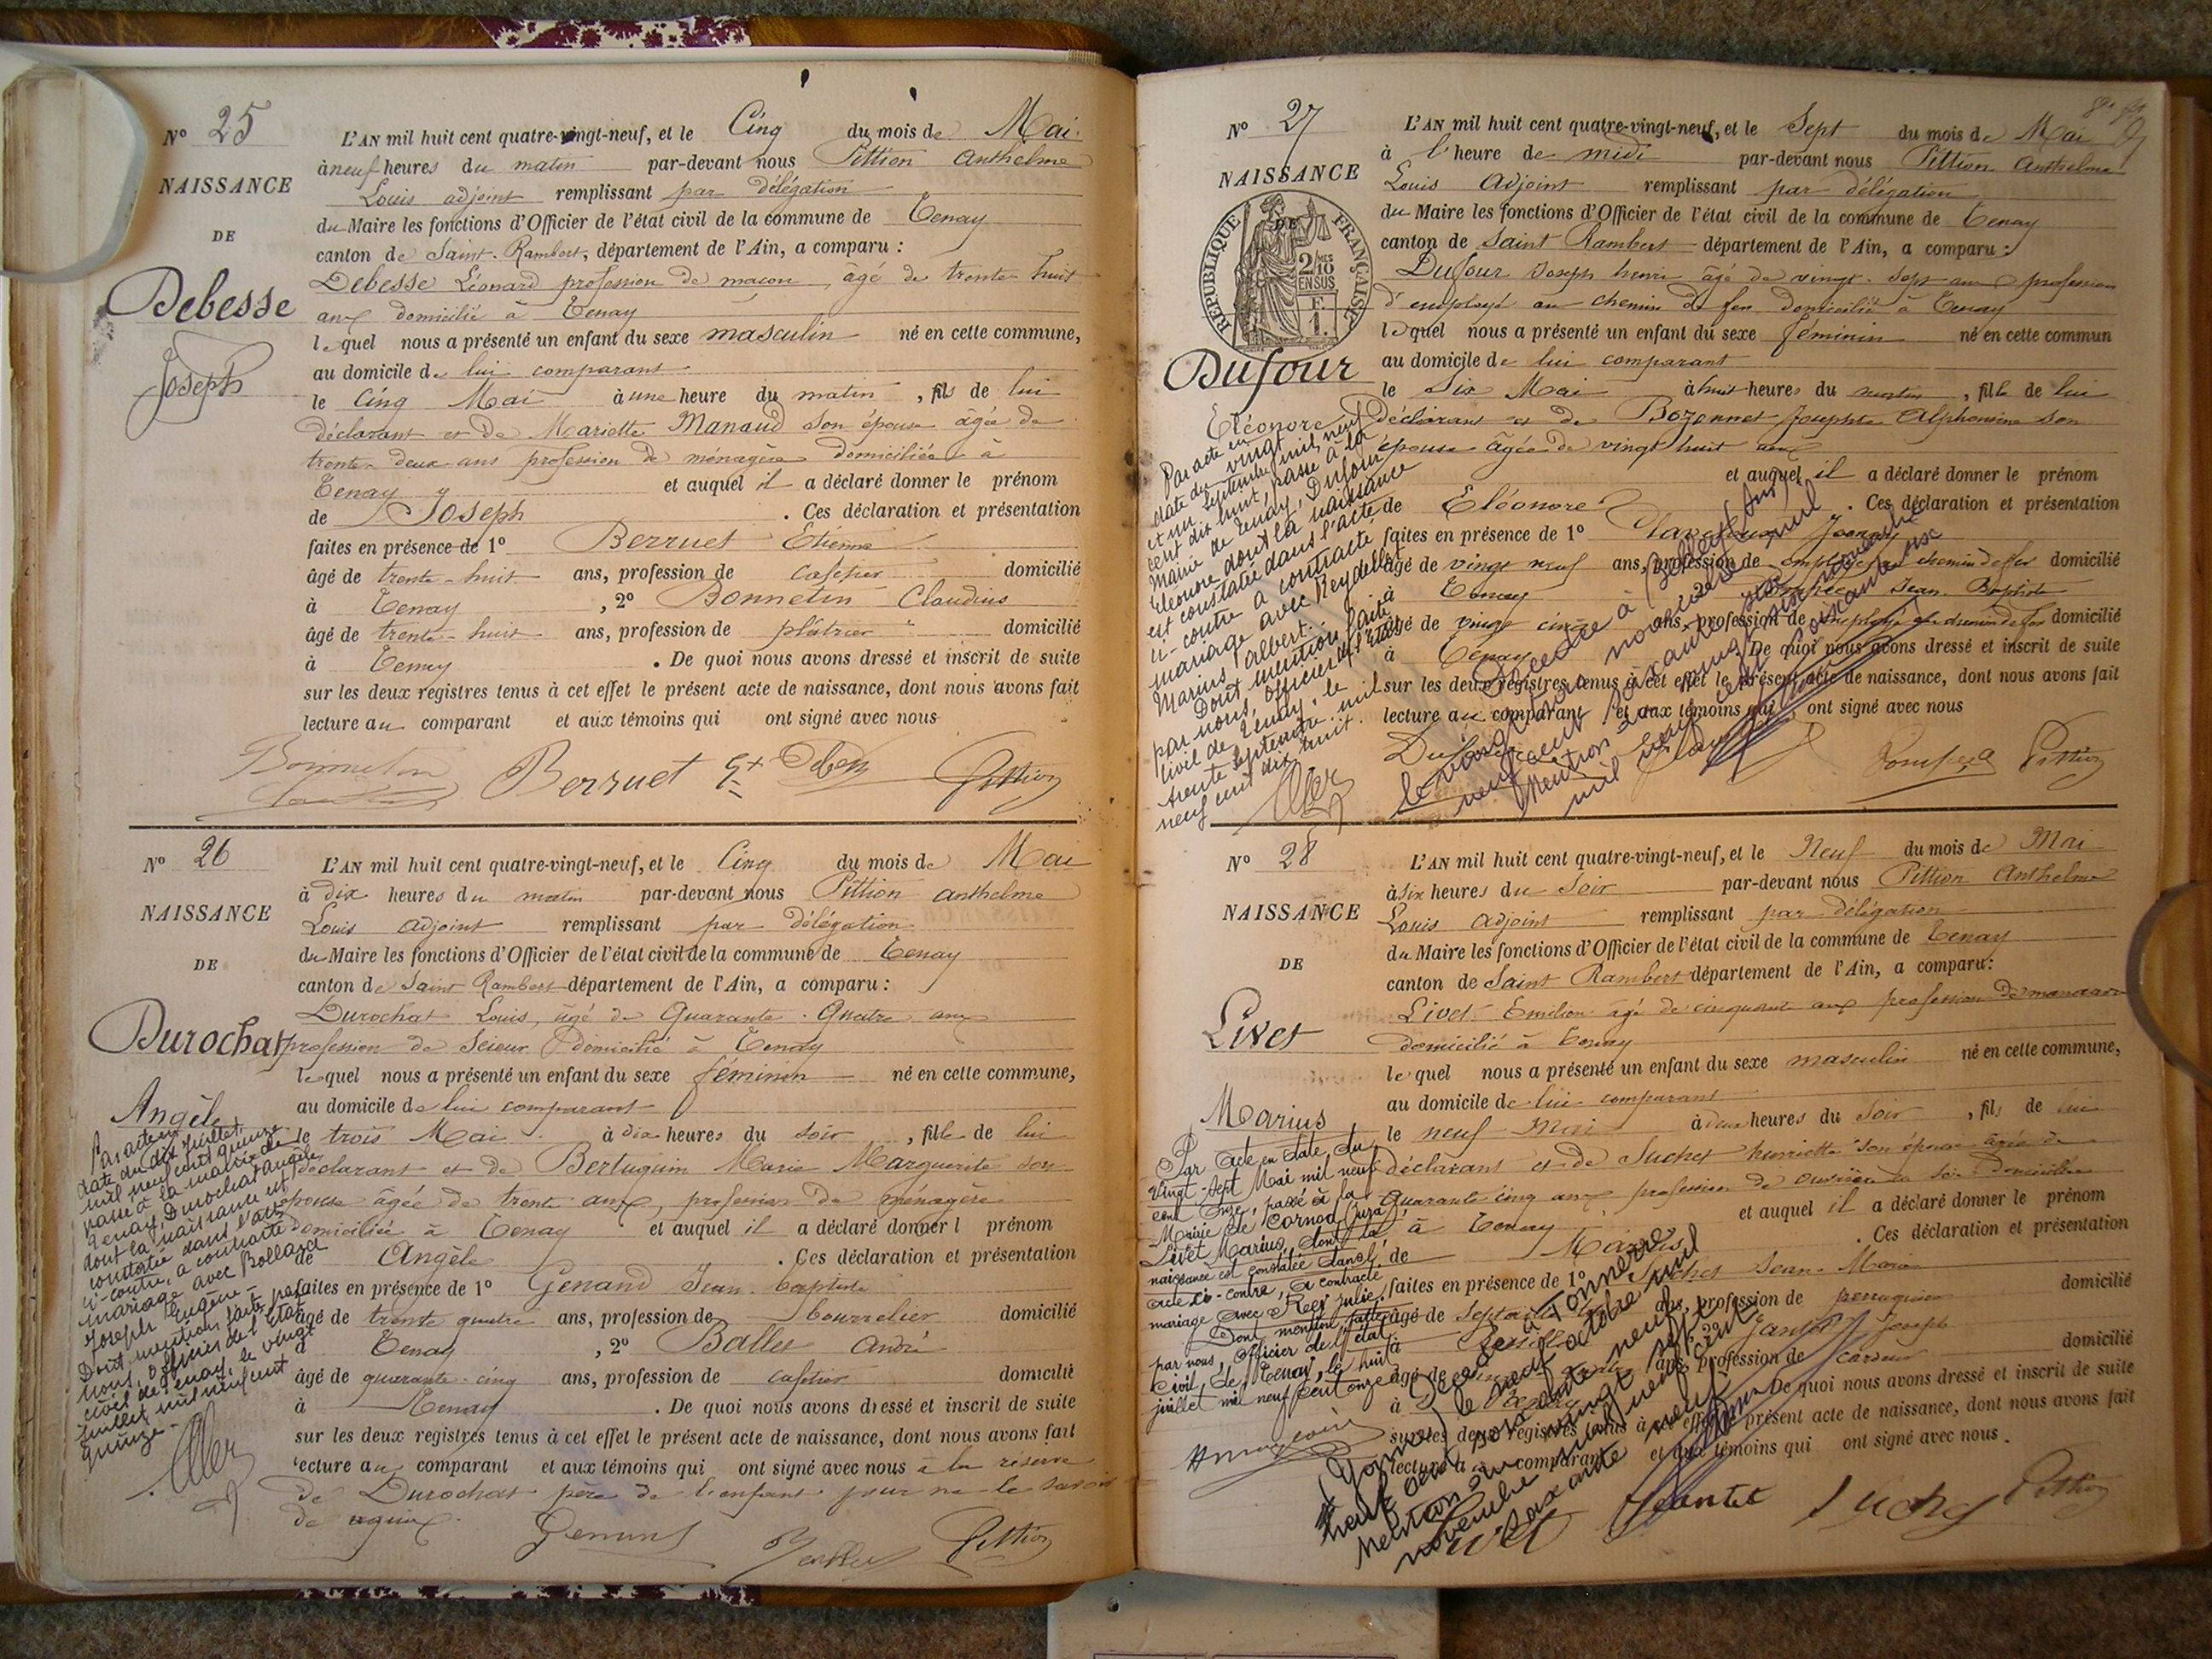 N° 25
NAISSANCE
DE
Debesse
Joseph
L'AN mil huit cent quatre-vingt-neuf, et le Cinq du mois de Mai
à neuf heures du matin par-devant nous Pittion Anthelme
Louis adjoint remplissant par délégation
du Maire les fonctions d'Officier de l'état civil de la commune de Tenay
canton de Saint-Rambert, département de l'Ain, a comparu :
Debesse Léonard profession de maçon, âgé de trente-huit
ans domicilié à Tenay
lequel nous a présenté un enfant du sexe masculin né en cette commune,
au domicile de lui comparant
le Cinq Mai à une heure du matin, fils de lui
déclarant et de Mariette Manaud son épouse âgée de
trente-deux ans profession de ménagère domiciliée à
Tenay et auquel il a déclaré donner le prénom
de Joseph . Ces déclaration et présentation
faites en présence de 1° Berruet Etienne
âgé de trente-huit ans, profession de cafetier domicilié
à Tenay , 2° Bonneton Claudius
âgé de trente-huit ans, profession de plâtrier domicilié
à Tenay . De quoi nous avons dressé et inscrit de suite
sur les deux registres tenus à cet effet le présent acte de naissance, dont nous avons fait
lecture au comparant et aux témoins qui ont signé avec nous
Bonneton Berruet Et Debess Pittion
N° 26
NAISSANCE
DE
Durochat
Angèle
L'AN mil huit cent quatre-vingt-neuf, et le Cinq du mois de Mai
à dix heures du matin par-devant nous Pittion Anthelme
Louis adjoint remplissant par délégation
du Maire les fonctions d'Officier de l'état civil de la commune de Tenay
canton de Saint Rambert département de l'Ain, a comparu :
Durochat Louis, âgé de Quarante-Quatre ans
profession de Scieur domicilié à Tenay
lequel nous a présenté un enfant du sexe féminin né en cette commune,
au domicile de lui comparant
le trois Mai à dix heures du soir, fille de lui
déclarant et de Bertuguin Marie Marguerite son
épouse âgée de trente ans, profession de ménagère
domiciliée à Tenay et auquel il a déclaré donner l prénom
de Angèle . Ces déclaration et présentation
faites en présence de 1° Genand Jean-baptiste
âgé de trente quatre ans, profession de bourrelier domicilié
à Tenay , 2° Ballet André
âgé de quarante-cinq ans, profession de cafetier domicilié
à Tenay . De quoi nous avons dressé et inscrit de suite
sur les deux registres tenus à cet effet le présent acte de naissance, dont nous avons fait
lecture au comparant et aux témoins qui ont signé avec nous à la réserve
de Durochat père de l'enfant pour ne le savoir
de requis.
Pittion
Par acte en
date du dix juillet,
mil neuf cent quinze
passé à la mairie de
Tenay, Durochat Angèle
dont la naissance est
constatée dans l'acte
ci-contre, a contracté
mariage avec Bolland
Joseph Eugène.
Dont mention faite par
nous, Officier de l'Etat
civil de Tenay, le vingt
juillet mil neuf cent
quinze.
N° 27
NAISSANCE
DE
RÉPUBLIQUE FRANÇAISE
2/10 EN SUS
F. 1.
Dufour
Eléonore
L'AN mil huit cent quatre-vingt-neuf, et le Sept du mois de Mai
à l'heure de midi par-devant nous Pittion Anthelme
Louis Adjoint remplissant par délégation
du Maire les fonctions d'Officier de l'état civil de la commune de Tenay
canton de Saint Rambert département de l'Ain, a comparu :
Dufour Joseph henri âgé de vingt-sept ans profession
d'employé au chemin de fer domicilié à Tenay
lequel nous a présenté un enfant du sexe féminin né en cette commun
au domicile de lui comparant
le Six Mai à huit heures du matin, fille de lui
déclarant et de Bozonnet Josephte Alphonsine son
épouse âgée de vingt huit ans
et auquel il a déclaré donner le prénom
de Eléonore . Ces déclaration et présentation
faites en présence de 1°
âgé de vingt neuf ans, profession de employé au chemin de fer domicilié
à Tenay 2° Jean-Baptiste
âgé de vingt cinq ans, profession de employé au chemin de fer domicilié
à Tenay . De quoi nous avons dressé et inscrit de suite
sur les deux registres tenus à cet effet le présent acte de naissance, dont nous avons fait
lecture au comparant et aux témoins qui ont signé avec nous
Dufour Pittion
Par acte en
date du vingt
et un septembre mil neuf
cent dix huit, passé à la
mairie de Tenay, Dufour
Eléonore dont la naissance
est constatée dans l'acte
ci-contre a contracté
mariage avec Reydellet
Marius Albert.
Dont mention faite
par nous, officier de l'état
civil de Tenay, le
trente septembre mil
neuf cent dix huit.
Décédée à Belley (Ain)
le vingt six novembre mil
neuf cent soixante six
Mention
mil neuf cent soixante six
N° 28
NAISSANCE
DE
Livet
Marius
L'AN mil huit cent quatre-vingt-neuf, et le Neuf du mois de Mai
à six heures du Soir par-devant nous Pittion Anthelme
Louis Adjoint remplissant par délégation
du Maire les fonctions d'Officier de l'état civil de la commune de Tenay
canton de Saint Rambert département de l'Ain, a comparu :
Livet Emilien âgé de cinquante ans profession de
domicilié à Tenay
lequel nous a présenté un enfant du sexe masculin né en cette commune,
au domicile de lui comparant
le neuf Mai à deux heures du Soir, fils de lui
déclarant et de Suchet henriette son épouse âgée de
Quarante cinq ans profession de ouvrière en soie domiciliée
à Tenay et auquel il a déclaré donner le prénom
de Marius . Ces déclaration et présentation
faites en présence de 1° Suchet Jean-Marie
âgé de ans, profession de perruquier domicilié
à 2° Jantet Joseph
âgé de ans, profession de cardeur domicilié
à Tenay De quoi nous avons dressé et inscrit de suite
sur les deux registres tenus à cet effet le présent acte de naissance, dont nous avons fait
lecture au comparant et aux témoins qui ont signé avec nous.
Livet Jeantet Suchet Pittion
Par acte en date du
vingt-sept Mai mil neuf
cent onze, passé à la
Mairie de Cornod (Jura),
Livet Marius, dont la
naissance est constatée dans l'
acte ci-contre, a contracté
mariage avec Rey Julie.
Dont mention faite
par nous, Officier de l'état
Civil de Tenay, le huit
juillet mil neuf cent onze
Décédé à Tonnerre
(Yonne) le neuf octobre mil
neuf cent soixante neuf
Mention vingt sept
novembre mil neuf cent
soixante neuf